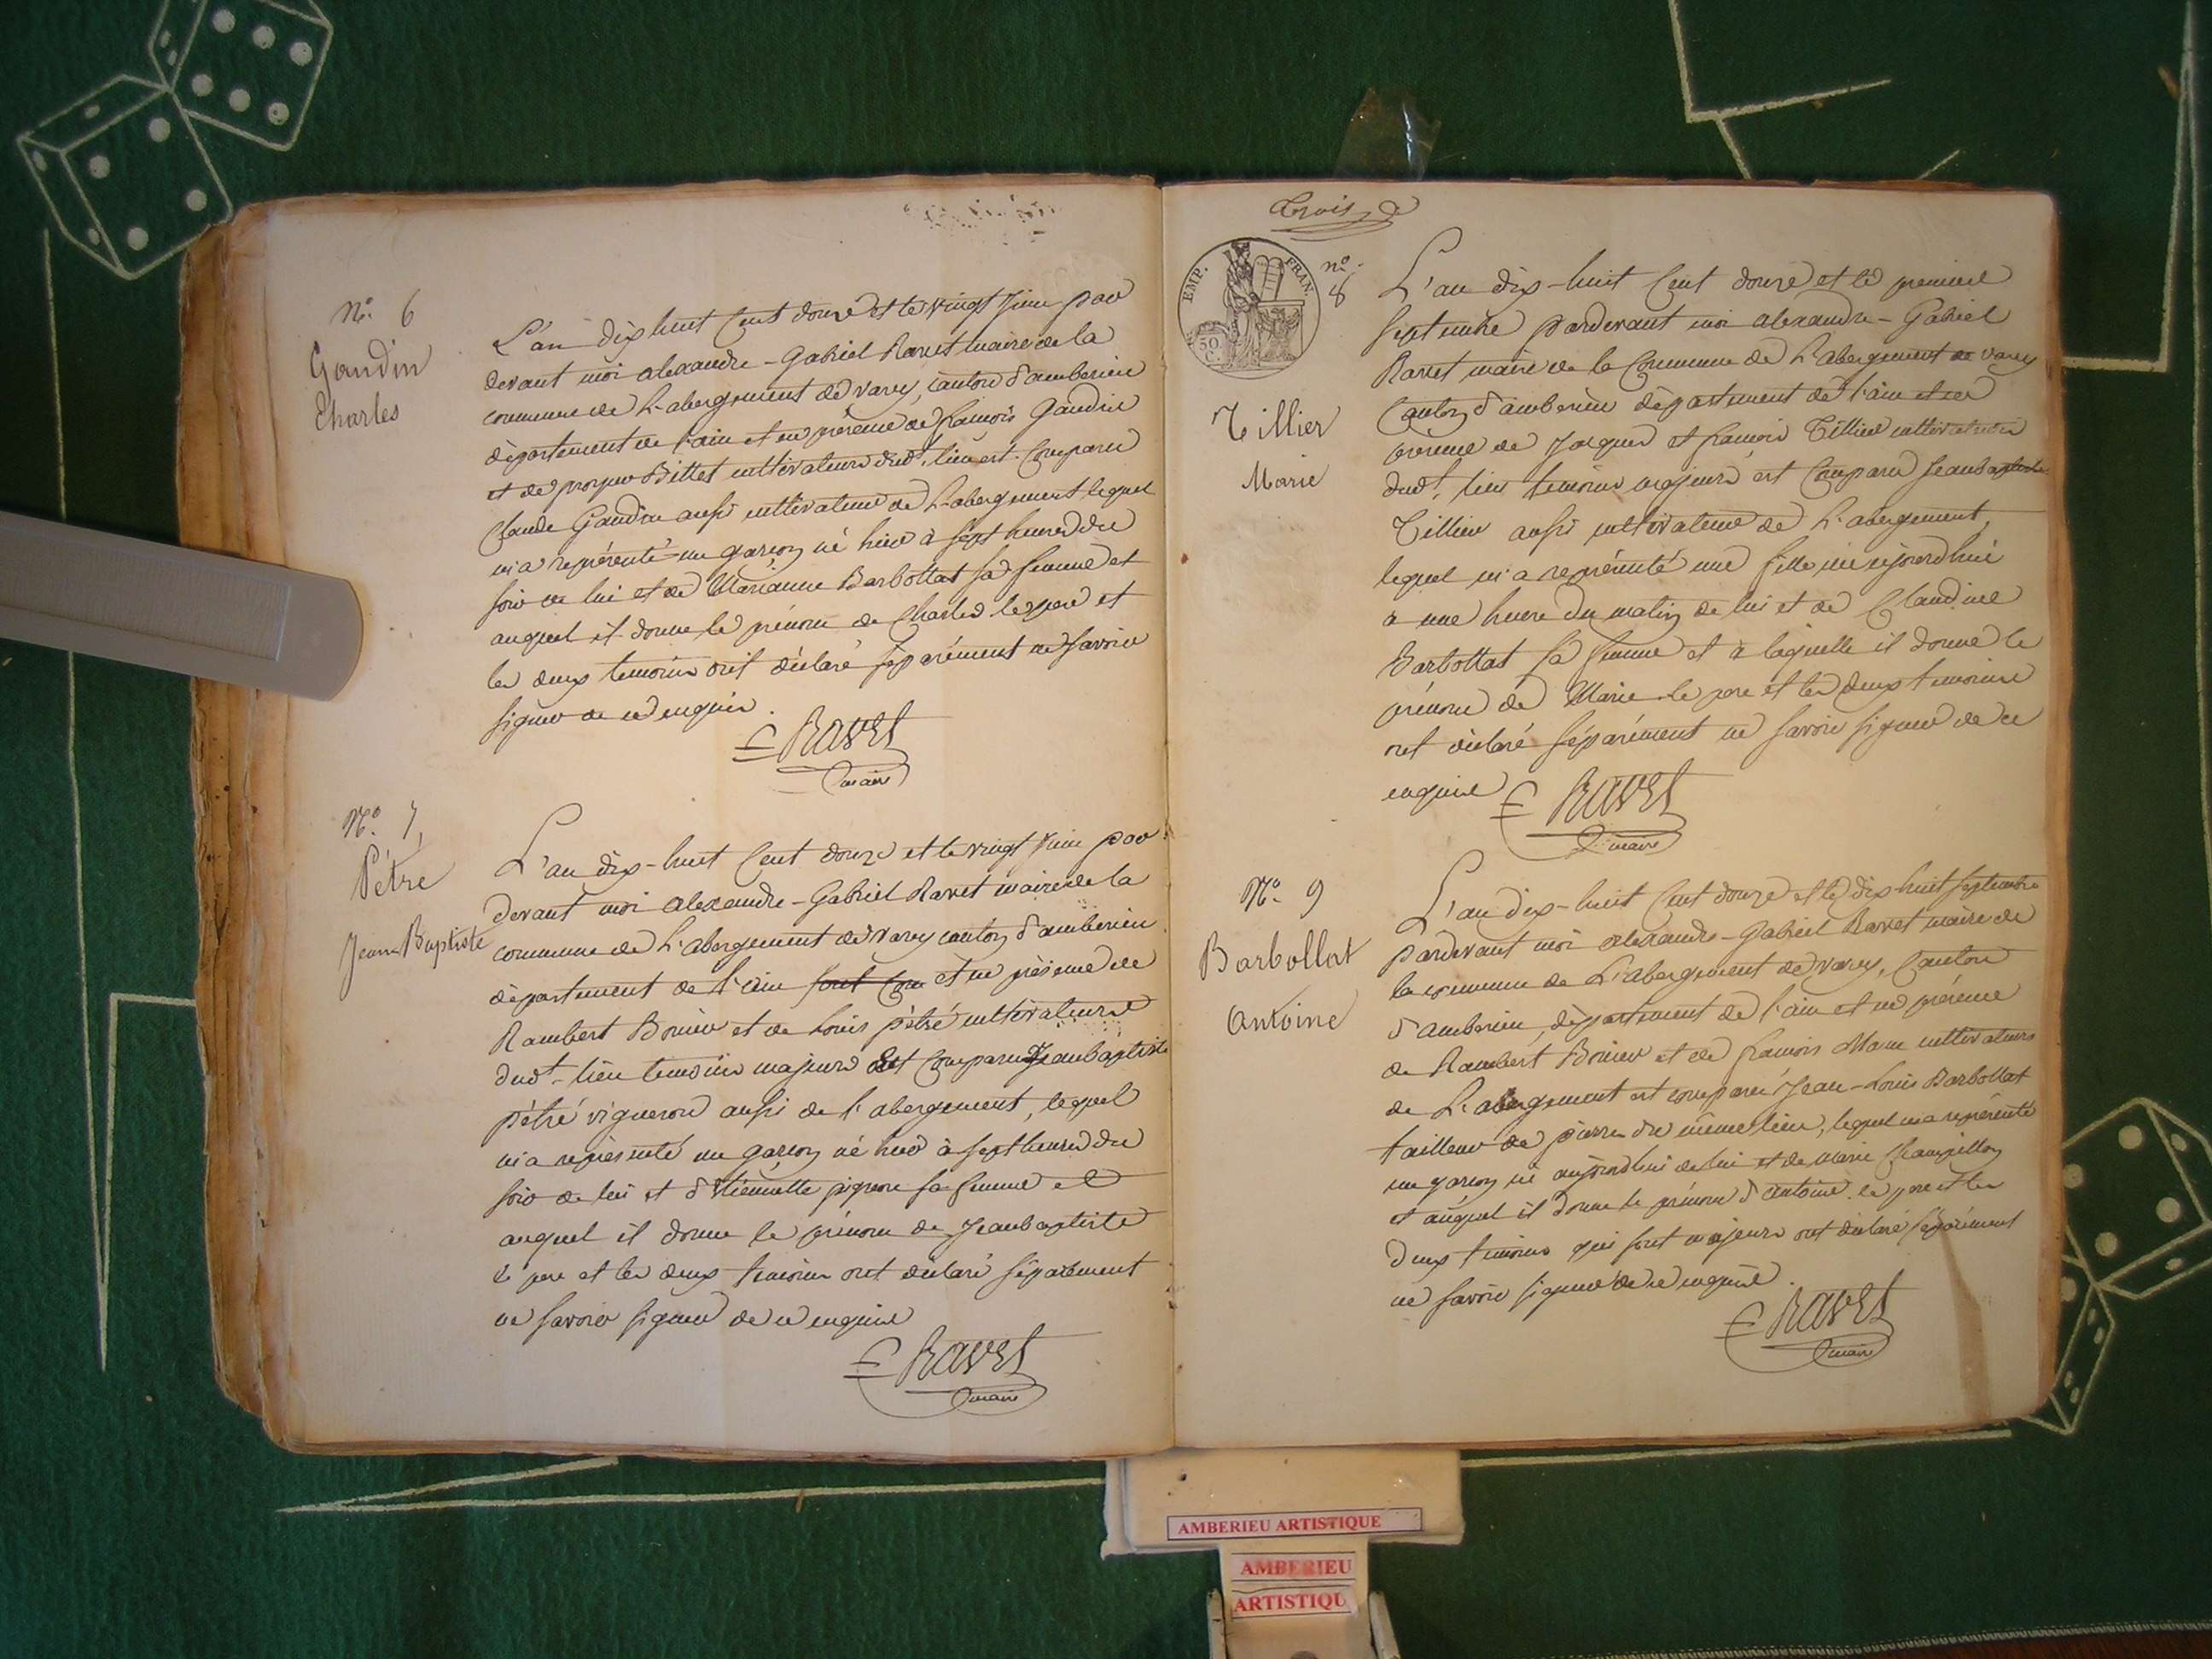 N.o 6
Gaudin
Charles
L'an dix huit Cent douze et le vingt Juin par
devant moi alexandre - Gabriel Ravet maire de la
commune de L'abergement de varey, canton d'amberieu
département de l'ain et en présence de françois Gaudin
et de prosper Billet cultivateurs dudt. lieu est Comparu
Claude Gaudin aussi cultivateur de L'abergement lequel
m'a représenté un garçon né hier à sept heures du
soir de lui et de Marianne Barbollat sa femme et
auquel il donne le prénom de Charles le pere et
les deux temoins ont déclaré séparément ne savoir
signer de ce enquis.
Ravet
maire
N.o 7,
Pétre
Jean Baptiste
L'an dix-huit Cent douze et le vingt Juin par
devant moi alexandre - Gabriel Ravet maire de la
commune de L'abergement de varey canton d'amberieu
département de l'ain sont Com et en présence de
Rambert Bonier et de Louis pétré cultivateurs
dudt. lieu temoins majeurs Est Comparu Jeanbaptiste
pétré vigneron aussi de l'abergement, lequel
m'a représenté un garçon né hier à sept heures du
soir de lui et d'Etiennette pignon sa femme et
auquel il donne le prénom de Jeanbaptiste
le pere et les deux temoins ont déclaré séparément
ne savoir signer de ce enquis
Ravet
maire
Trois
EMP. FRAN.
50
C.
no.
8
Tillier
Marie
L'an dix-huit Cent douze et le premier
septembre pardevant moi alexandre - Gabriel
Ravet maire de la Commune de L'abergement de varey
Canton d'amberieu département de l'ain et en
présence de Jacques et françois Tillier cultivateurs
dudt. lieu temoins majeurs est Comparu Jeanbaptiste
Tillier aussi cultivateur de L'abergement,
lequel m'a représenté une fille née aujourd'hui
à une heure du matin de lui et de Claudine
Barbollat sa femme et à laquelle il donne le
prénom de Marie le pere et les deux temoins
ont déclaré séparément ne savoir signer de ce
enquis
Ravet
maire
N.o 9
Barbollat
Antoine
L'an dix-huit Cent douze et le dix huit septembre
pardevant moi alexandre - Gabriel Ravet maire de
la commune de L'abergement de varey, Canton
d'amberieu, département de l'ain et en présence
de Rambert Bonier et de françois cultivateurs
de L'abergement est comparu Jean-Louis Barbollat
tailleur de pierre du même lieu, lequel m'a représenté
un garçon né aujourd'hui de lui et de Marie Champillon
et auquel il donne le prénom d'antoine. le pere et les
deux temoins qui sont majeurs ont déclaré séparément
ne savoir signer de ce enquis.
Ravet
maire
AMBERIEU ARTISTIQUE
AMBERIEU
ARTISTIQU